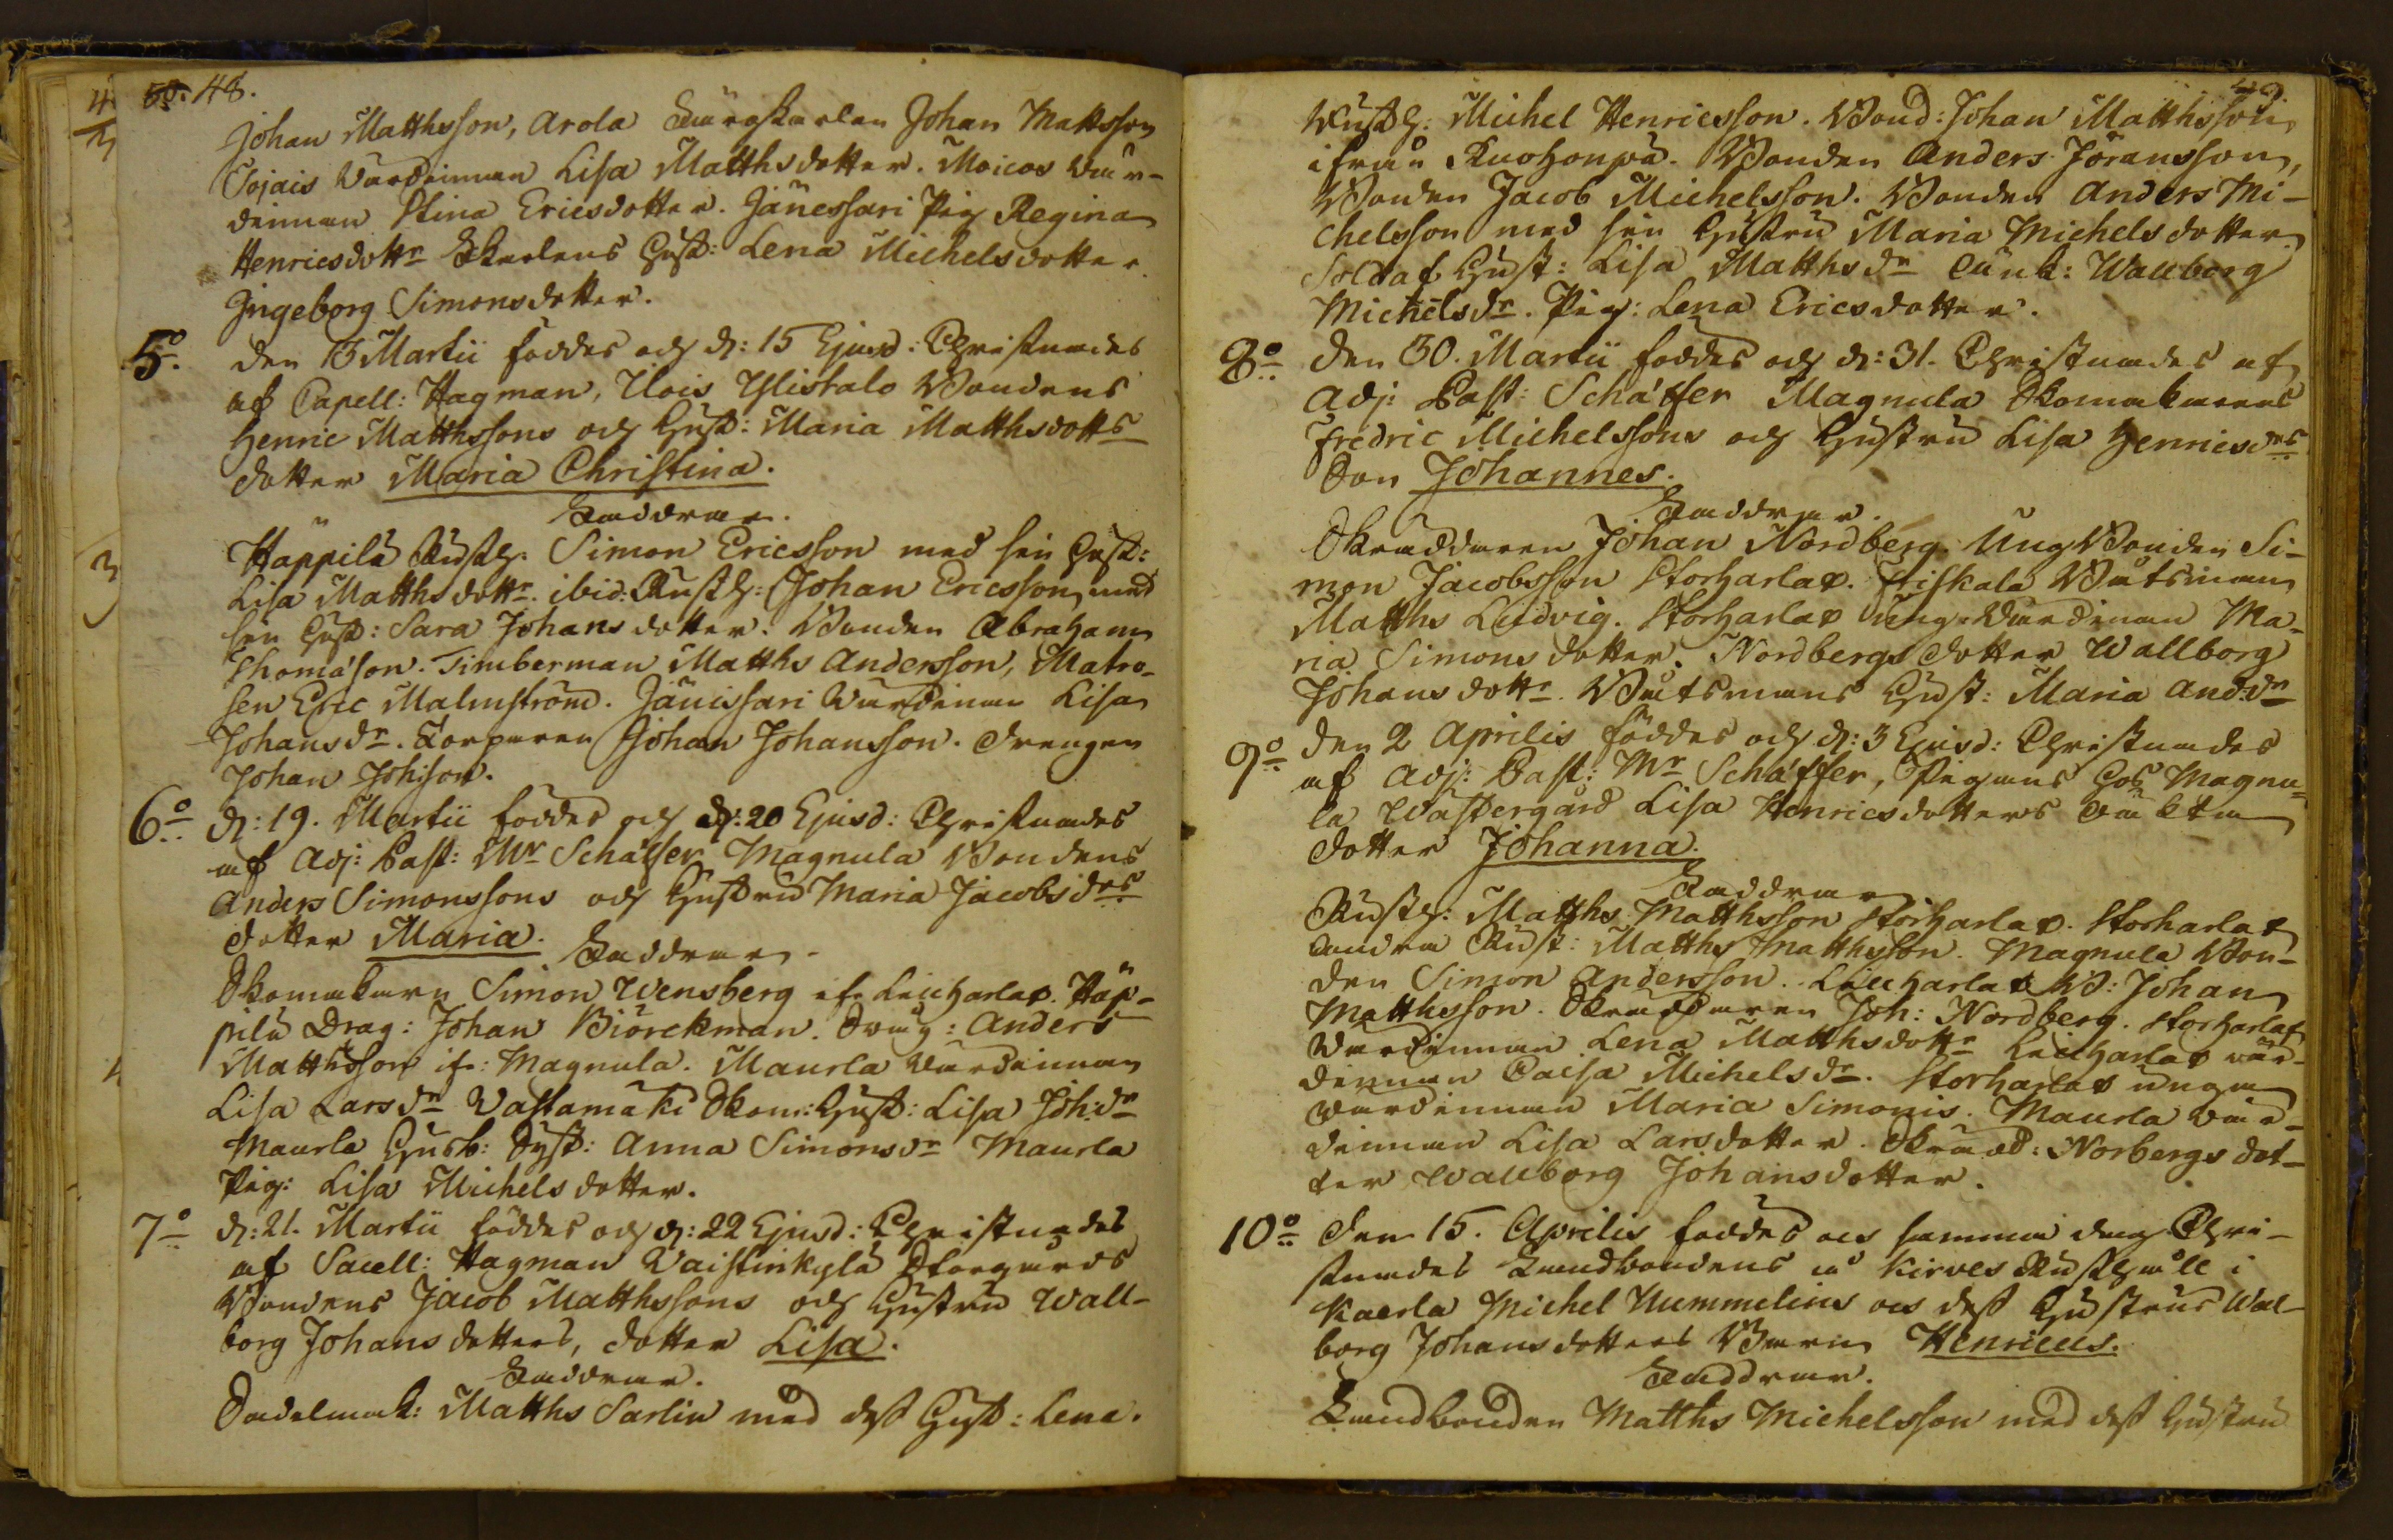 50. 48.
Johan Matthsson, Arola Tårpkarlen Johan Mattsson
Tojais Värdinnan Lisa Matthsdotter. Moicos Vär-
dinnan Stina Ericsdotter. Jänessari Pig Regina
Henricsdottr Skarlens Hust: Lena Michelsdotter.
Ingeborg Simonsdotter.
5o. den 13 Martii föddes och d: 15 Ejusd: Christnades
af Capell: Hagman, Ilois Ylistalo Bondens
Henric Matthssons och Hust: Maria Matthsdotts
dotter Maria Christina.
Faddrar.
Häppilä Rusth. Simon Ericsson med sin Hust:
Lisa Matthsdottr. ibid: Rusth: Johan Ericsson med
sin Hust: Sara Johansdotter: Bonden Abraham
Thomason. Timberman Matths Andersson, Matro-
sen Eric Malmström. Jänissari Värdinnan Lisa
Johansdr. Torparen Johan Johansson. Drengen
Johan Johsson.
6o. d: 19. Martii föddes och d: 20 Ejusd: Christnades
af Adj: Past: Mr Schäffer Magnula Bondens
Anders Simonssons och Hustru Maria Jacobsdrs
dotter Maria.
Faddrar.
Skomakarn Simon Wensberg if. Leuharlax. Häp-
pilä Drag: Johan Biörckman. Dräng: Anders
Matthsson if: Magnula. Maurla Värdinnan
Lisa Larsdr Vastamäki Skom: Hust: Lisa Joh:dr
Maurla Husb: Syst: Anna Simonsdr Maurla
Pig: Lisa Michelsdotter.
7o d: 21. Martii föddes och d: 22 Ejusd: Christnades
af Sacell: Hagman Vaistinkylä Storgårds
Bondens Jacob Matthssons och Hustru Wall-
borg Johansdotters, dotter Lisa.
Faddrar.
Sadelmak: Matths Sarlin med dess Hust: Lena.
49.
Rusth: Michel Henricsson. Bond: Johan Matthsson
ifrån Ruohonpä. Bonden Anders Jöransson,
Bonden Jacob Michelsson. Bonden Anders Mi-
chelsson med sin Hustru Maria Michelsdotter
Soldat Hust: Lisa Matthsdr Enk: Wallborg
Michelsdr. Pig: Lena Ericsdotter.
8o den 30. Martii föddes och d: 31. Christnades af
Adj: Past: Schäffer Magnula Skomakarens
Fredric Michelssons och Hustru Lisa Henricsdrs
Son Johannes.
Faddrar.
Skraddaren Johan Nordberg. Ung Bonden Si-
mon Jacobsson Storharlax. Båtsman
Matths Ludvig. Storharlax Unga Värdinnan Ma-
ria Simonsdotter. Nordbergs dotter Wallborg
Johansdottr. Båtsmans Hust: Maria And:dr
9o den 2 Aprilis föddes och d: 3 Ejusd: Christnades
af Adj: Past: Mr Schäffer, Pigans hos Magnu-
la Wästergård Lisa Henricsdotters oäkta
dotter Johanna.
Faddrar
Rusth: Matths Matthsson Storharlax. Storharlax
andra Rust: Matths Matthsson. Magnula Bon-
den Simon Andersson. Leuharlax B: Johan
Matthsson. Skraddaren Joh: Nordberg. Storharlax
Wärdinnan Lena Matthsdottr Leuharlax wär-
dinnan Caisa Michelsdr. Storharlax unga
wärdinnan Maria Simonis. Maurla wär-
dinnan Lisa Larsdotter. Skradd: Norbergs dot-
ter Wallborg Johansdotter.
10o den 15. Aprilis föddes och samma dag Chri-
stnades Landbondens å Kirves Rusthåll i
Kaerla Michel Nummelins och dess Hustrus Wal-
borg Johansdotters Barn Henricus.
Faddrar.
Landbonden Matths Michelsson med dess Hustru